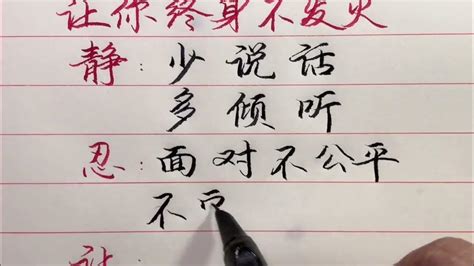 让你终身不发火
静：少说话
多倾听
忍：面对不公平
不
让